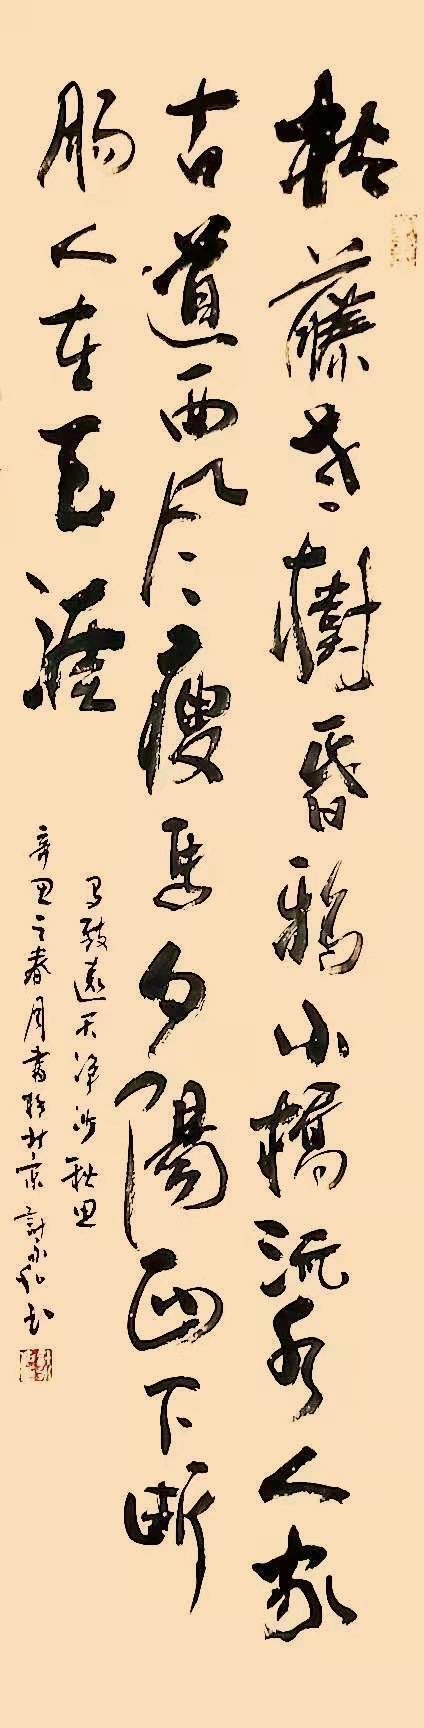 枯藤老樹昏鴉小橋流水人家
古道西风瘦馬夕陽西下断
肠人在天涯
马致遠天净沙秋思
辛丑之春月書於北京